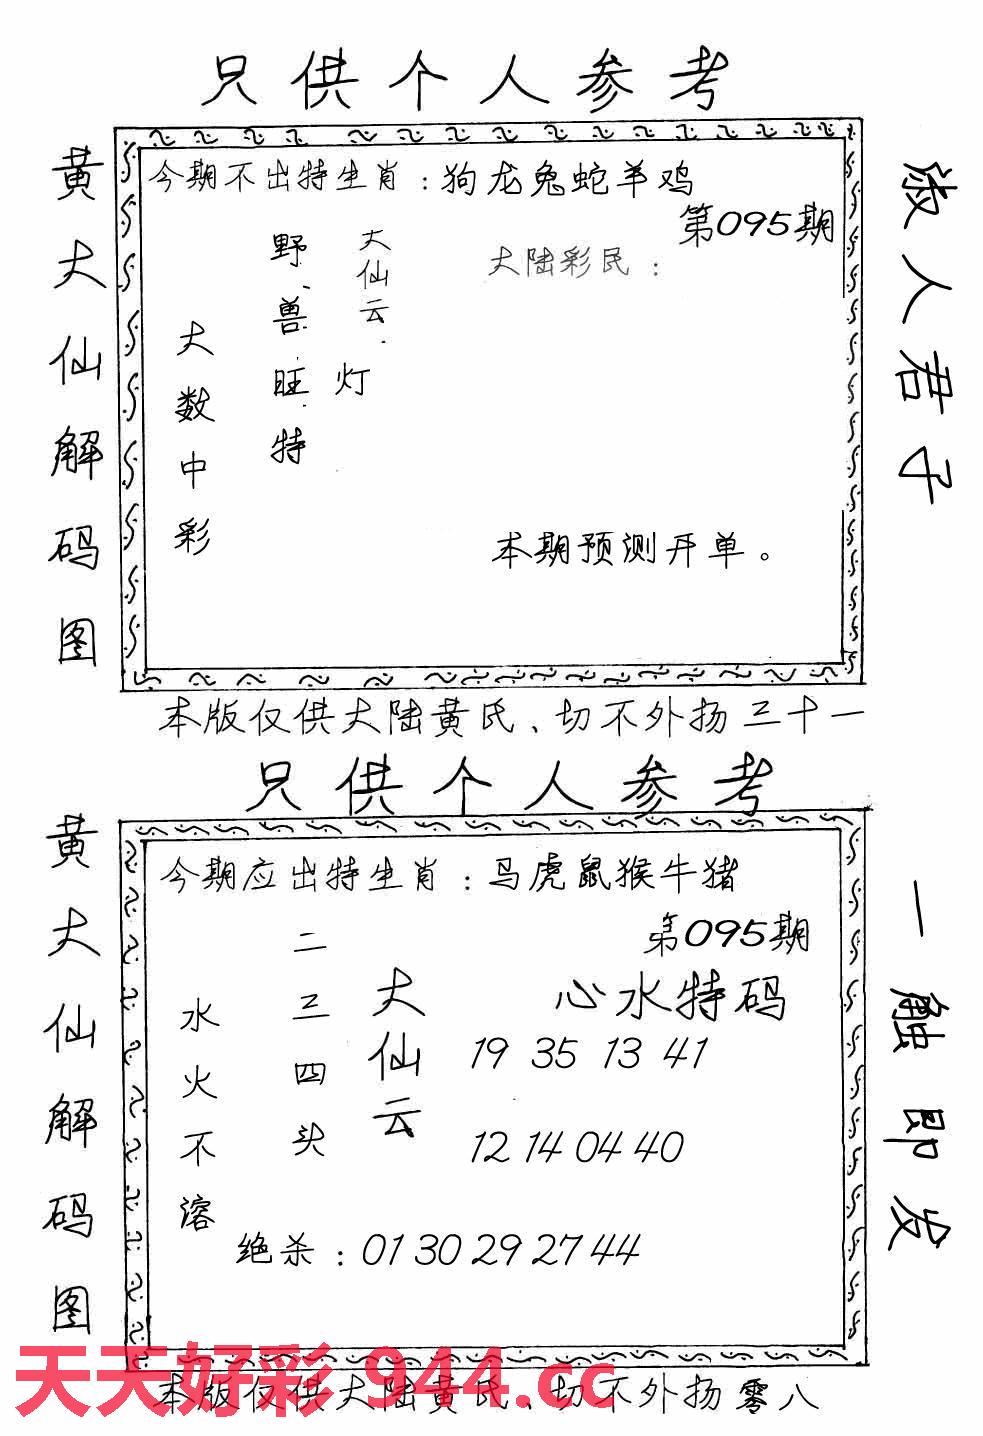 只供个人参考
黄大仙解码图
今期不出特生肖：狗龙兔蛇羊鸡
第095期
大陆彩民：
大仙云.
灯
野兽旺特
大数中彩
本期预测开单。
淑人君子
本版仅供大陆黄氏、切不外扬三十一
只供个人参考
黄大仙解码图
今期应出特生肖：马虎鼠猴牛猪
第095期
心水特码
19 35 13 41
12 14 04 40
大仙云
二三四头
水火不溶
绝杀：01 30 29 27 44
一触即发
天天好彩 944.cc
本版仅供大陆黄氏、切不外扬零八